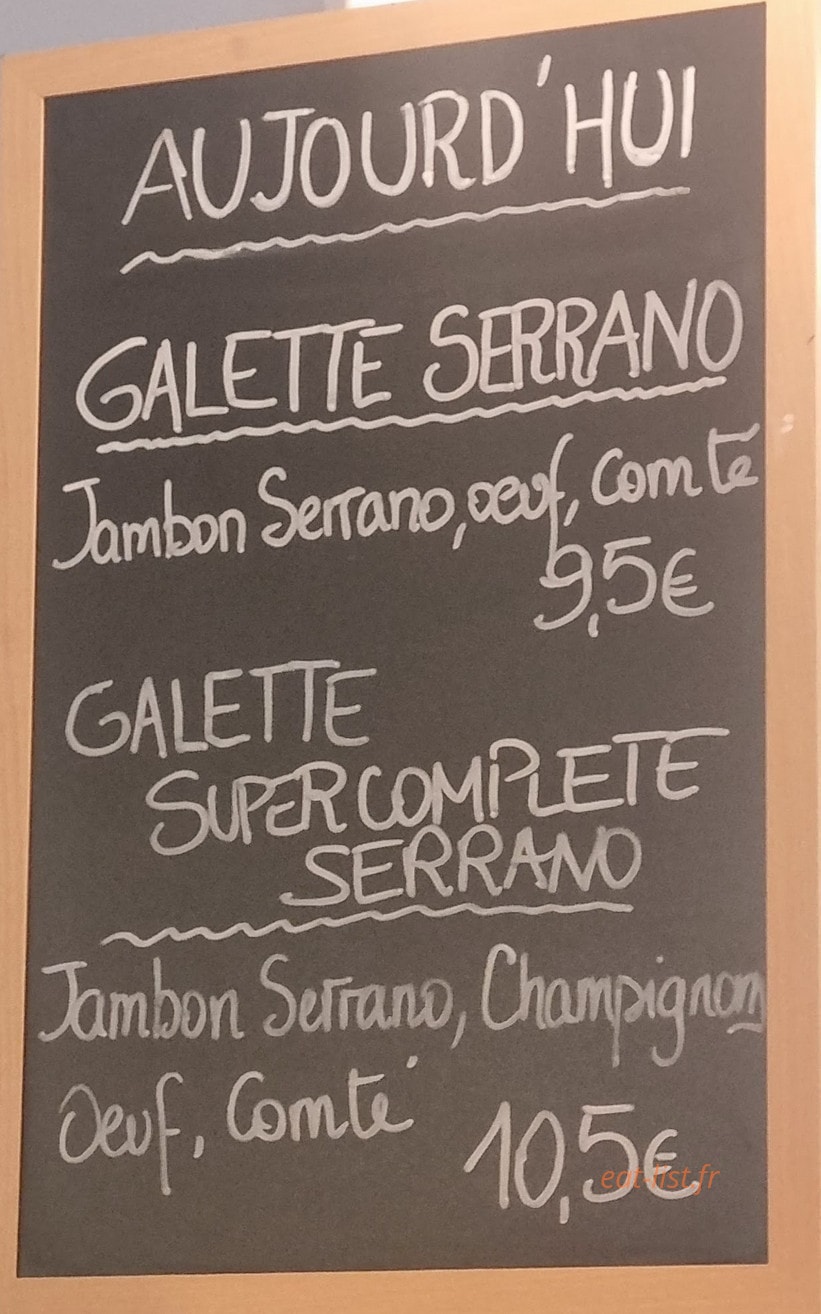 AUJOURD'HUI
GALETTE SERRANO
Jambon Serrano, oeuf, comté
9,5€
GALETTE
SUPERCOMPLETE
SERRANO
Jambon Serrano, Champignons
Oeuf, Comté
10,5€
eat-list.fr